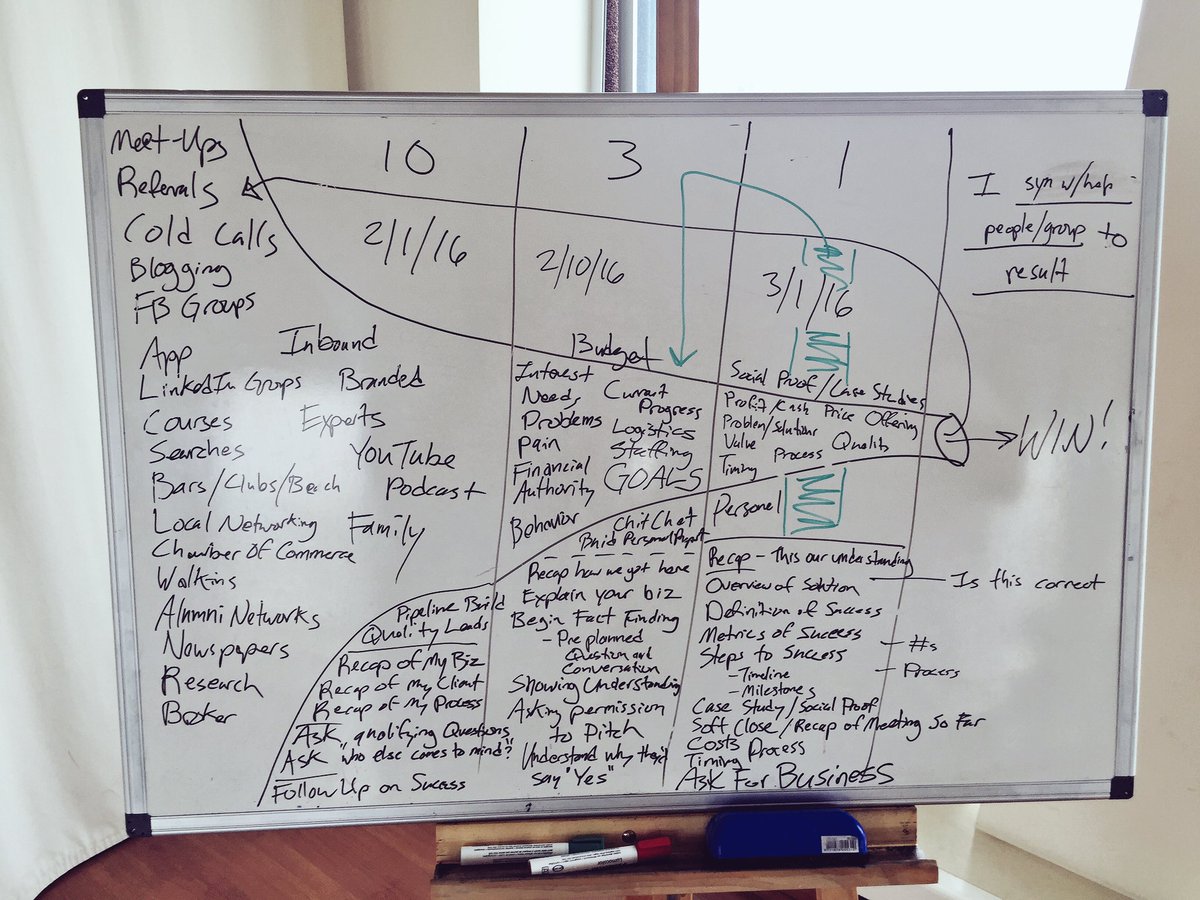 Meet-Ups
Referrals
Cold Calls
Blogging
FB Groups
App
Inbound
LinkedIn Groups Branded
Courses Experts
Searches YouTube
Bars/Clubs/Beach Podcast
Local Networking Family
Chamber Of Commerce
Walkins
Alumni Networks
Newspapers
Research
10
2/1/16
Pipeline Build
Quality Leads
Recap of My Biz
Recap of my Client
Recap of my Process
Ask qualifying Questions
Ask "who else comes to mind?"
Follow Up on Success
3
2/10/16
Budget
Interest
Needs Current
Progress
Problems Logistics
Pain Staffing
Financial GOALS
Authority
Behavior
Chit Chat
Build Personal
Recap how we got here
Explain your biz
Begin Fact Finding
- Pre planned
Question and
Conversation
Showing Understanding
Asking permission
to Pitch
Understand why they'd
say "Yes"
1
3/1/16
Social Proof/Case Studies
Profit/Cash Price Offering
Problem/Solutions
Value Process Quality
Timing
Personel
Recap - This our understanding
Overview of Solution — Is this correct
Definition of Success
Metrics of Success - #s
Steps to Success - Process
- Timeline
- Milestones
Case Study/Social Proof
Soft Close/Recap of Meeting So Far
Costs Process
Timing
Ask For Business
I syn w/help
people/group to
result
WIN!